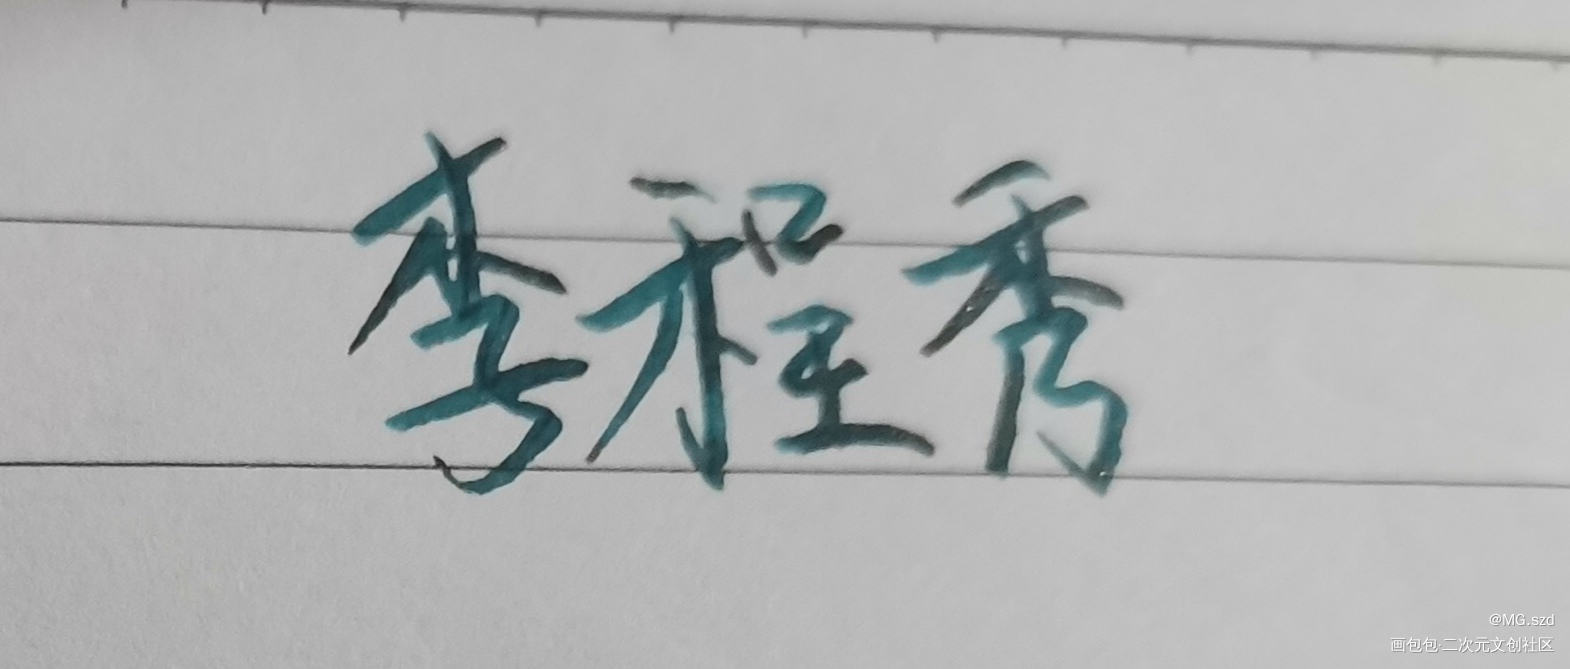 李程秀
@MG.szd
画包包·二次元文创社区